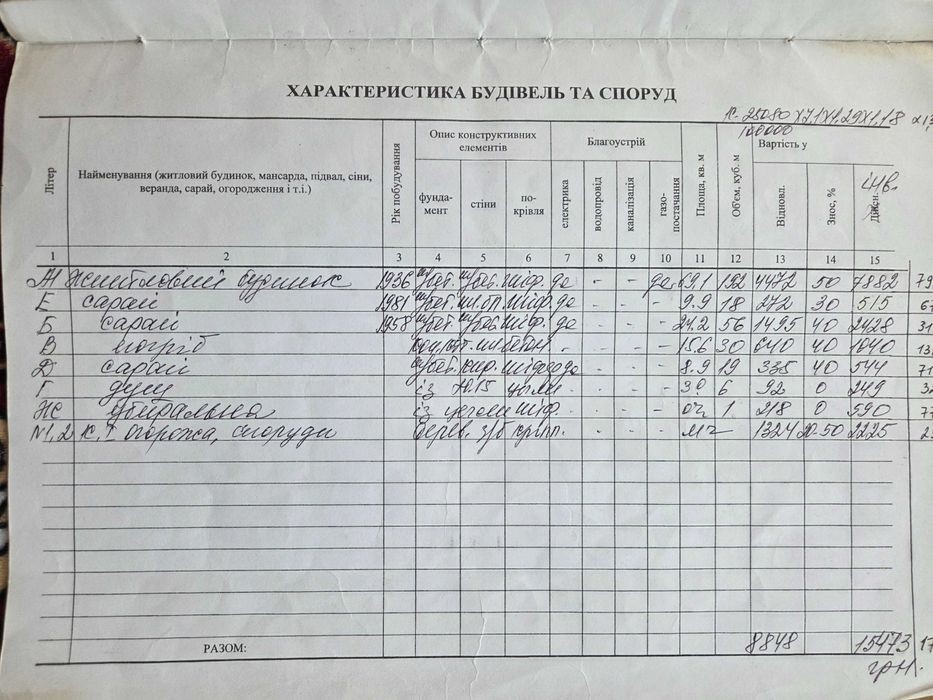 ХАРАКТЕРИСТИКА БУДІВЕЛЬ ТА СПОРУД
25080 х 7,1 х 1,29 х 1,18
100000
Літер Найменування (житловий будинок, мансарда, підвал, сіни, веранда, сарай, огородження і т.і.) Рік побудування Опис конструктивних елементів Благоустрій Площа, кв. м Об'єм, куб. м Вартість у
фунда-мент стіни по-крівля електрика водопровід каналізація газо-постачання Відновл. Знос, % Дійсн. інв.
1 2 3 4 5 6 7 8 9 10 11 12 13 14 15
А Житловий будинок 1936 шиф. де - - де 69.1 192 4472 50 7882
Е сарай 1981 шиф. де - - - 9.9 18 272 30 515
Б сарай 1958 шиф. де - - - 24.2 56 1495 40 2428
В погріб бетон - - - - 15.6 30 640 40 1040
Д сарай де - - - 8.9 19 335 40 544
Г душ із - - - - 30 6 92 0 249
Ж убиральна із цегли шиф. - - - - 1 218 0 590
N1,2 К, І огорожа, споруди дерев. з/б 1324 20-50 2225
РАЗОМ: 8848 15473
грн.